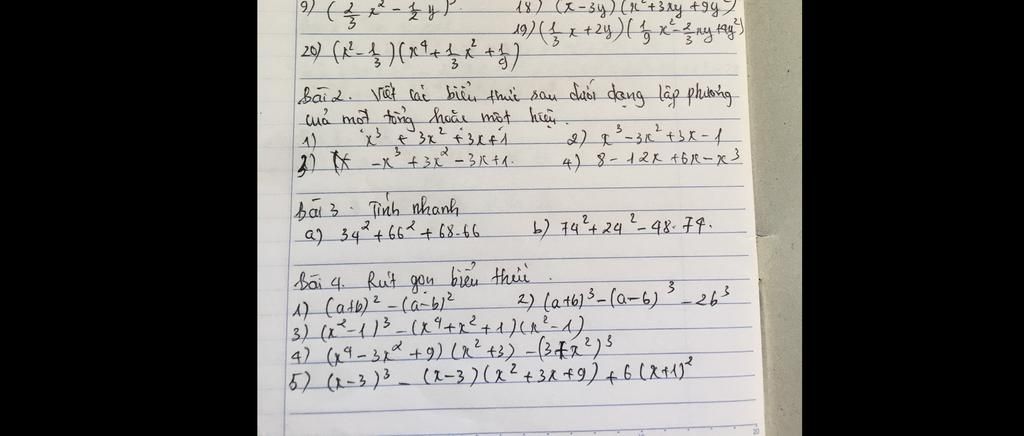 9) (2/3 x² - 1/2 y)³ 18) (x-3y)(x²+3xy+9y²)
19) (1/3 x + 2y)(1/9 x² - 2/3 xy + 4y²)
20) (x² - 1/3)(x⁴ + 1/3 x² + 1/9)
Bài 2. Viết các biểu thức sau dưới dạng lập phương
của một tổng hoặc một hiệu.
1) x³ + 3x² + 3x + 1 2) x³ - 3x² + 3x - 1
3) -x³ + 3x² - 3x + 1. 4) 8 - 12x + 6x - x³
Bài 3. Tính nhanh
a) 34² + 66² + 68.66 b) 74² + 24² - 48.74.
Bài 4. Rút gọn biểu thức.
1) (a+b)² - (a-b)² 2) (a+b)³ - (a-b)³ - 2b³
3) (x²-1)³ - (x⁴+x²+1)(x²-1)
4) (x⁴ - 3x² + 9)(x² + 3) - (3+x²)³
5) (x-3)³ - (x-3)(x²+3x+9) + 6(x+1)²